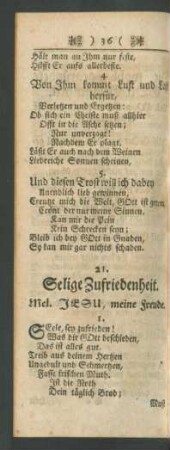 ) 36 (
Hält man an Ihm nur feste,
Hilfft Er aufs allerbeste.
4.
Von Ihm kommt Lust und
herfür,
Verletzen und Ergetzen:
Ob sich ein Christe muß allhier
Offt in die Asche setzen;
Nur unverzagt!
Nachdem Er plagt,
Läßt Er auch nach dem Weinen
Liebreiche Sonnen scheinen.
5.
Und diesen Trost will ich dabey
Nemlich lieb gewinnen,
Creutzt mich die Welt, GOtt ist getreu,
Crönt der nur meine Sinnen.
Kan mir die Pein
Kein Schrecken seyn;
Bleib ich bey GOtt in Gnaden,
So kan mir gar nichts schaden.
21.
Selige Zufriedenheit.
Mel. JESU, meine Freude.
1.
SEele, sey zufrieden!
Was dir GOtt beschieden,
Das ist alles gut.
Treib aus deinem Hertzen
Ungedult und Schmertzen,
Fasse frischen Muth.
Ist die Noth
Dein täglich Brod;